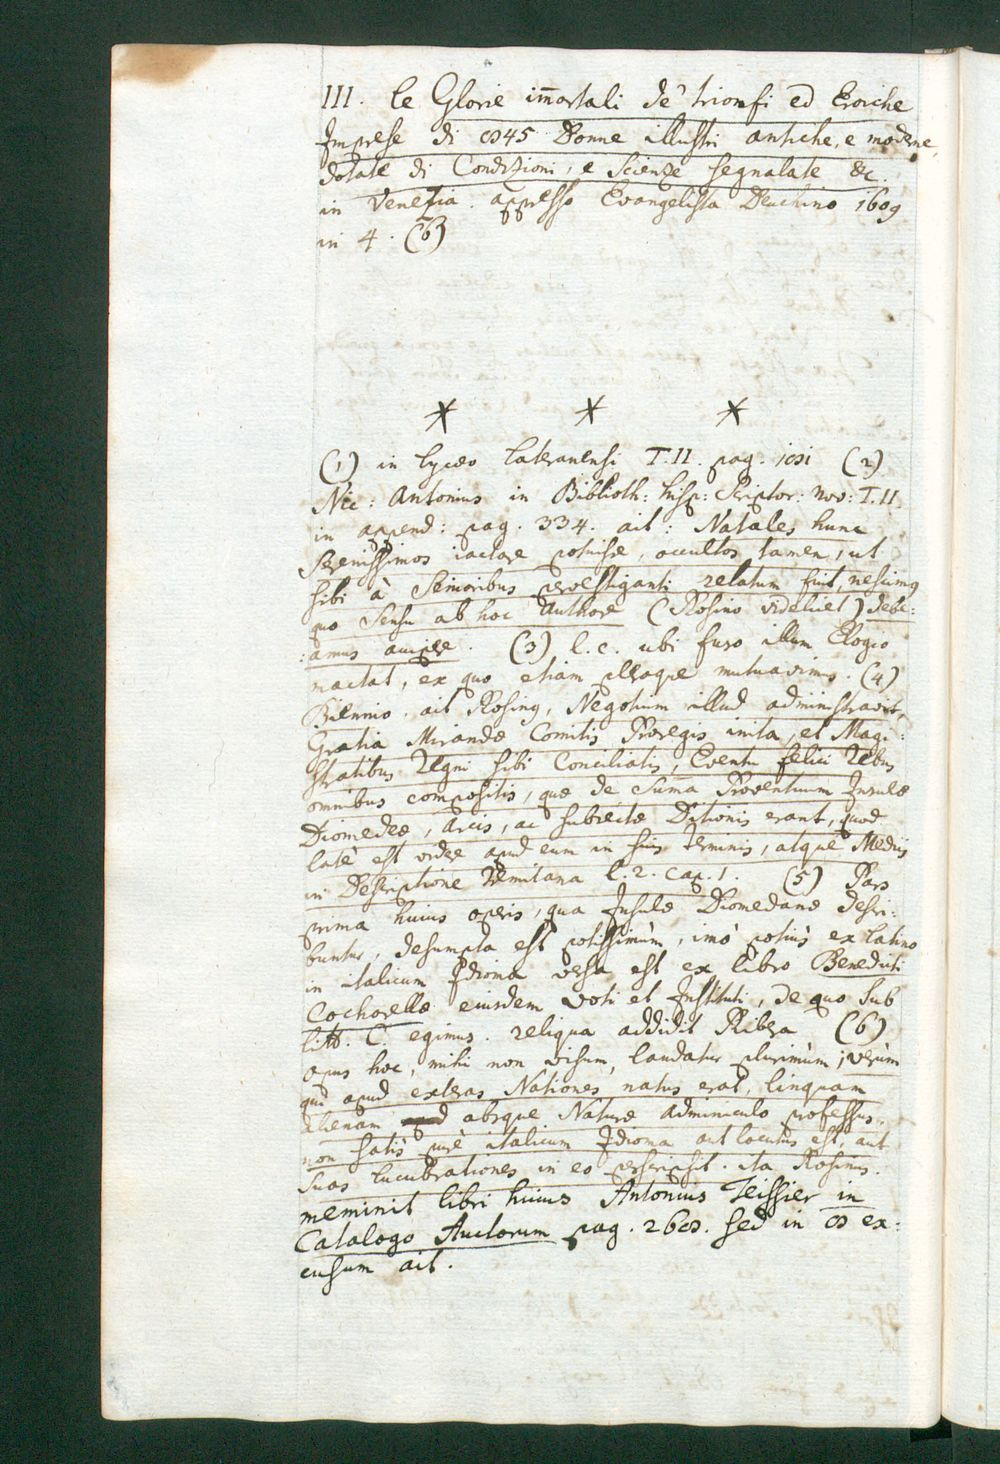 III. Le Glorie im̅ortali de' trionfi ed Eroiche
Imprese di 845 Donne illustri antiche, e moderne,
dotate di Condizioni, e Scienze segnalate &c.
in Venezia. appresso Evangelista Deuchino 1609
in 4. (6)
* * *
(1) in Lyceo Lateranensi T. II. pag. 181 (2)
Nic: Antonius in Biblioth: hisp: Scriptor: nov: T. II.
in append: pag. 334. ait: Natales hunc
Serenissimos iactare potuisse, occultos tamen, ut
sibi à Senioribus pervestiganti relatum fuit, nescimus
quo sensu ab hoc Authore (Rosino videlicet) debe:
:amus accipere. (3) l. c. ubi fuso illum Elogio
mactat, ex quo etiam pleraque mutuavimus. (4)
Biennio. ait Rosinus, Negotium illud administravit,
Gratia Mirandæ Comitis Proregis inita, et Magi:
stratibus Regni sibi Conciliatis, Eventu felici Rebus
omnibus compositis, quæ de Sum̅a Proventuum Insulæ
Diomedeæ, Arcis, ac subiectæ Ditionis erant, quod
latè est videre apud eum in suis terminis, atque Mediis
in Descriptione Tremitana l. 2. cap. 1. (5) Pars
prima huius operis, qua Insulæ Diomedanæ descri:
buntur, desumpta est potissimùm, imò potiùs ex latino
in italicum Idioma versa est ex libro Benedicti
Cochorellæ eiusdem Voti et Instituti, de quo sub
litt. C. egimus. reliqua addidit Ribera (6)
opus hoc, mihi non visum, laudatur plurimùm; verùm
qui apud exteras Nationes natus erat, linquam
alienam absque Naturæ adminiculo professus,
non satis purè italicum Idioma aut locutus est, aut
suas lucubrationes in eo perscripsit. ita Rosinus.
meminit libri huius Antonius Teissier in
Catalogo Auctorum pag. 268. sed in 8 ex:
cusum ait.